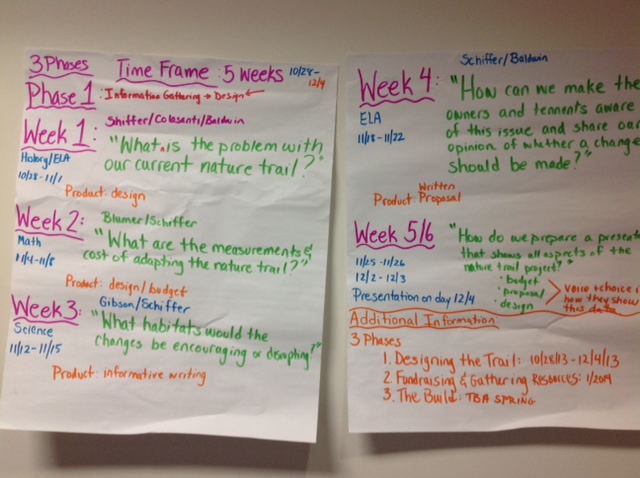 3 Phases Time Frame: 5 weeks 10/28-
12/4
Phase 1: Information Gathering → Design
Week 1: Shiffer/Colasanti/Baldwin
"What is the problem with
our current nature trail?"
/ELA
10/28-11/1
Product: design
Week 2: Blumer/Schiffer
Math
"What are the measurements &
cost of adapting the nature trail?"
11/4-11/8
Product: design/budget
Week 3: Gibson/Schiffer
Science
"What habitats would the
changes be encouraging or
11/12-11/15
Product: informative writing
Schiffer/Baldwin
Week 4: "How can we make the
ELA
owners and tennents aware
11/18-11/22
of this issue and share our
opinion of whether a change
should be made?"
Written
Product Proposal
Week 5/6 "How do we prepare a present
that shows all aspects of the
nature trail project?"
11/25-11/26
12/2-12/3
• budget
• proposal
• design
voice + choice i
how they show
this data
Presentation on day 12/4
Additional Information
3 Phases
1. Designing the Trail: 10/28/13-12/4/13
2. Fundraising & Gathering RESOURCES: 1/2014
3. The Build: TBA SPRING